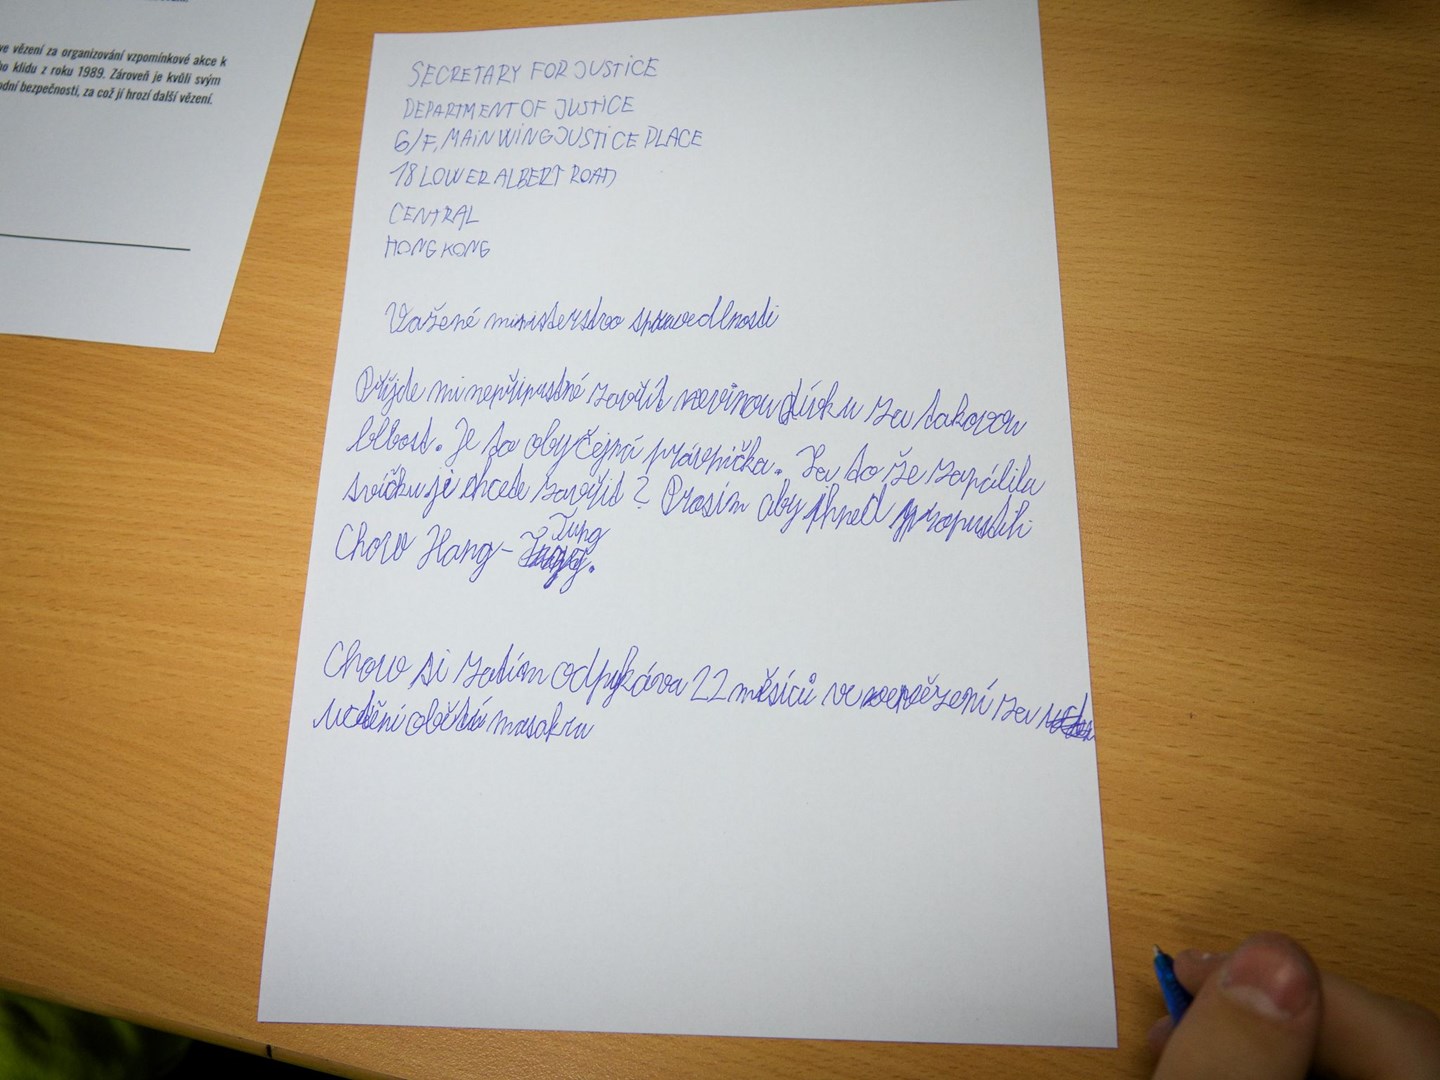 ve vězení za organizování vzpomínkové akce k
ho klidu z roku 1989. Zároveň je kvůli svým
odní bezpečnosti, za což jí hrozí další vězení.
SECRETARY FOR JUSTICE
DEPARTMENT OF JUSTICE
6/F, MAIN WING JUSTICE PLACE
18 LOWER ALBERT ROAD
CENTRAL
HONG KONG
Vážené ministerstvo spravedlnosti
Příjde mi nepřípustné zavřít nevinou dívku za takovou
blbost. Je to obyčejná právnička. Za to že zapálila
svíčku ji chcete zavřít? Prosím aby ihned propustili
Chow Hang-Tung.
Chow si zatím odpykáva 22 měsíců ve vězení za
uctění obětí masakru